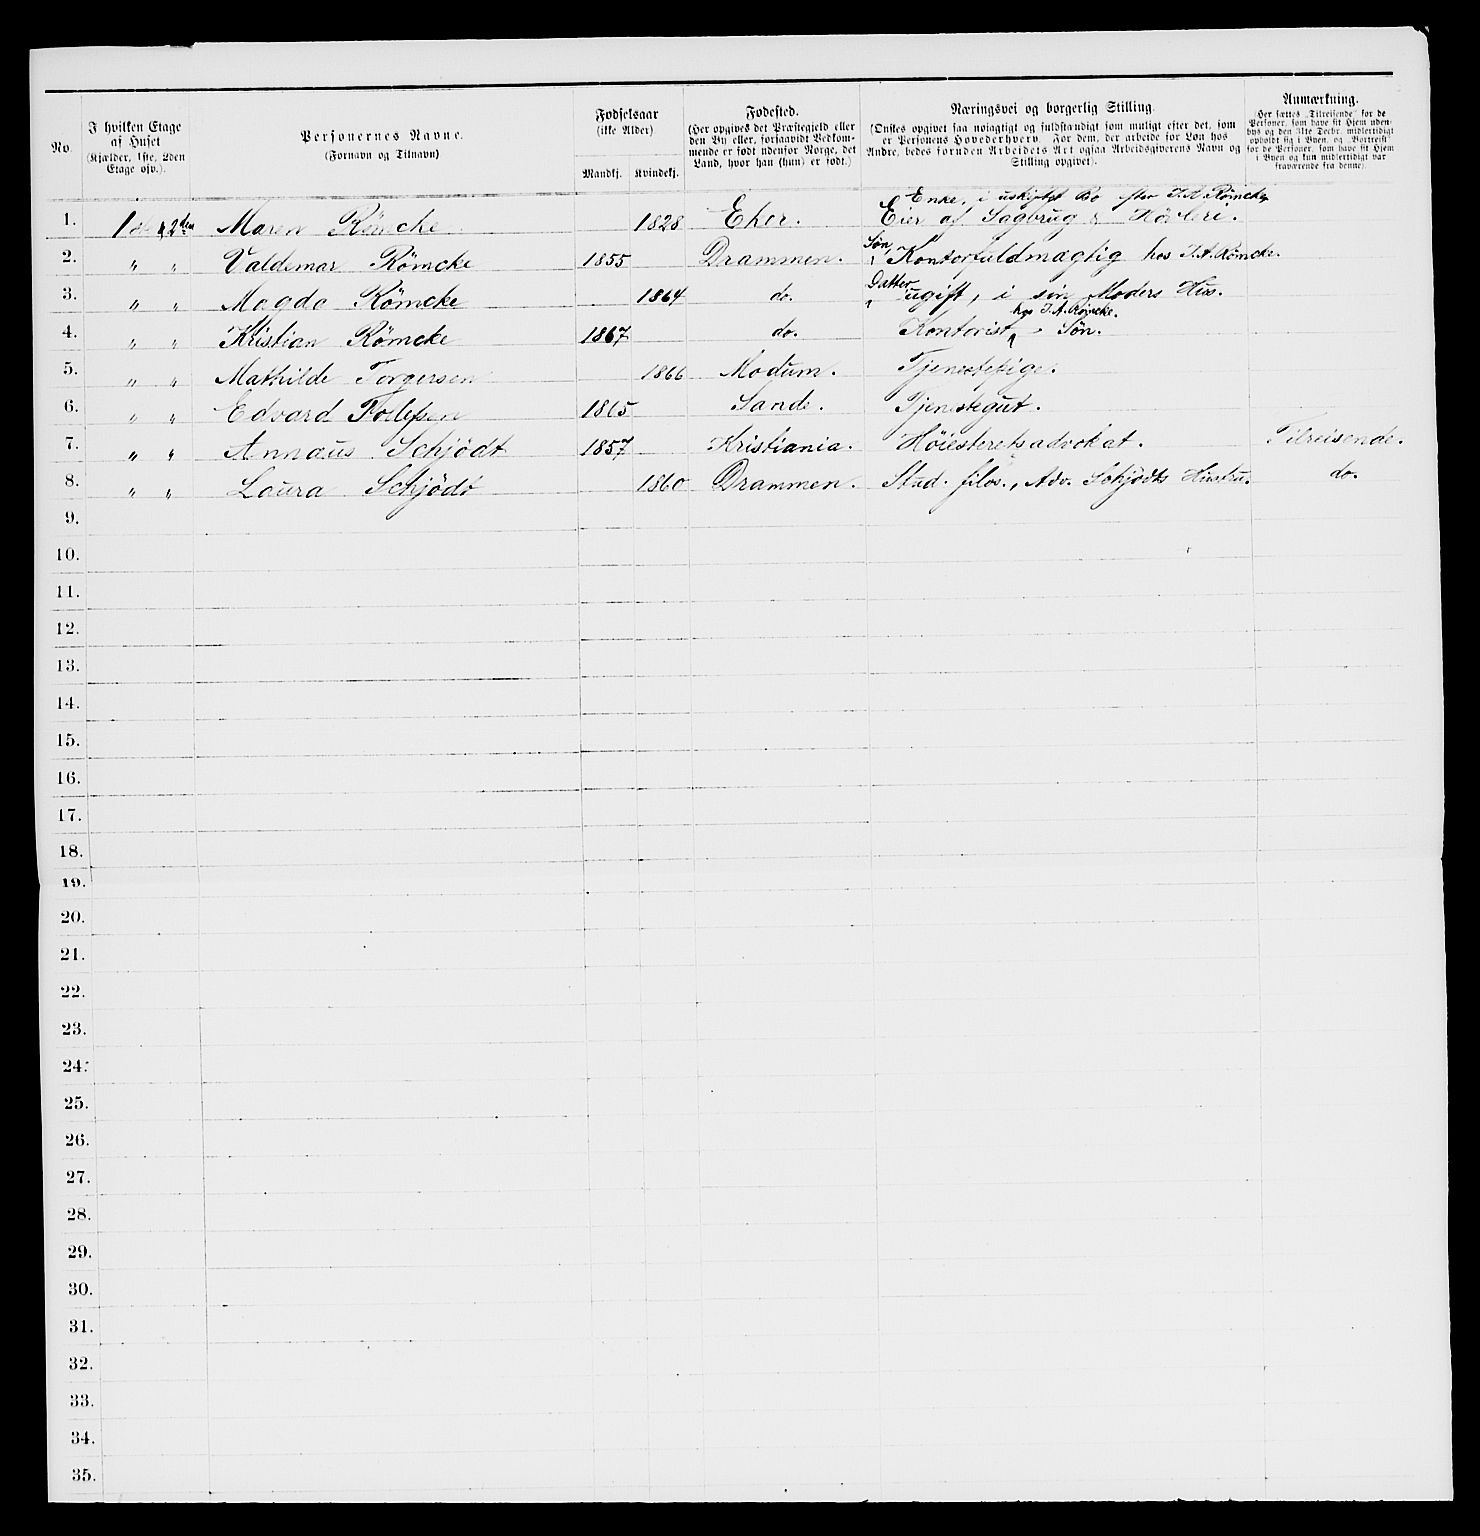 No.
I hvilken Etage af Huset (Kjælder, 1ste, 2den Etage osv.).
Personernes Navne. (Fornavn og Tilnavn)
Fødselsaar (ikke Alder) Mandkj. Kvindekj.
Fødested. (Her opgives det Præstegjeld eller den By eller, forsaavidt Vedkommende er født udenfor Norge, det Land, hvor han (hun) er født.)
Næringsvei og borgerlig Stilling. (Ønskes opgivet saa nøiagtigt og fuldstændigt som muligt efter det, som er Personens Hovederhverv. For dem, der arbeide for Løn hos Andre, bedes foruden Arbeidets Art ogsaa Arbeidsgiverens Navn og Stilling opgivet).
Anmærkning. (Her sættes „Tilreisende" for de Personer, som have sit Hjem udenbys og den 31te Decbr. midlertidigt opholdt sig i Byen, og „Bortreist" for de Personer, som have sit Hjem i Byen og kun midlertidigt var fraværende fra denne).
Enke, i uskiftet Bo efter J. A. Römcke,
1. 1ste & 2den Maren Römcke 1828 Eker. Eier af Sagbrug & Hövleri.
2. " " Valdemar Römcke 1855 Drammen. Søn, Kontorfuldmægtig hos J. A. Römcke.
3. " " Magda Römcke 1864 do. Datter ugift, i sin Moders Hus.
4. " " Kristian Römcke 1867 do. Kontorist hos J. A. Römcke. Søn.
5. " " Mathilde Torgersen 1866 Modum. Tjenestepige.
6. " " Edvard 1865 Sande. Tjenestegut.
7. " " Annæus Schjödt 1857 Kristiania. Höiesteretsadvokat. Tilreisende.
8. " " Laura Schjödt 1860 Drammen. Stud. filos., Adv. Schjödts Hustru. do.
9.
10.
11.
12.
13.
14.
15.
16.
17.
18.
19.
20.
21.
22.
23.
24.
25.
26.
27.
28.
29.
30.
31.
32.
33.
34.
35.